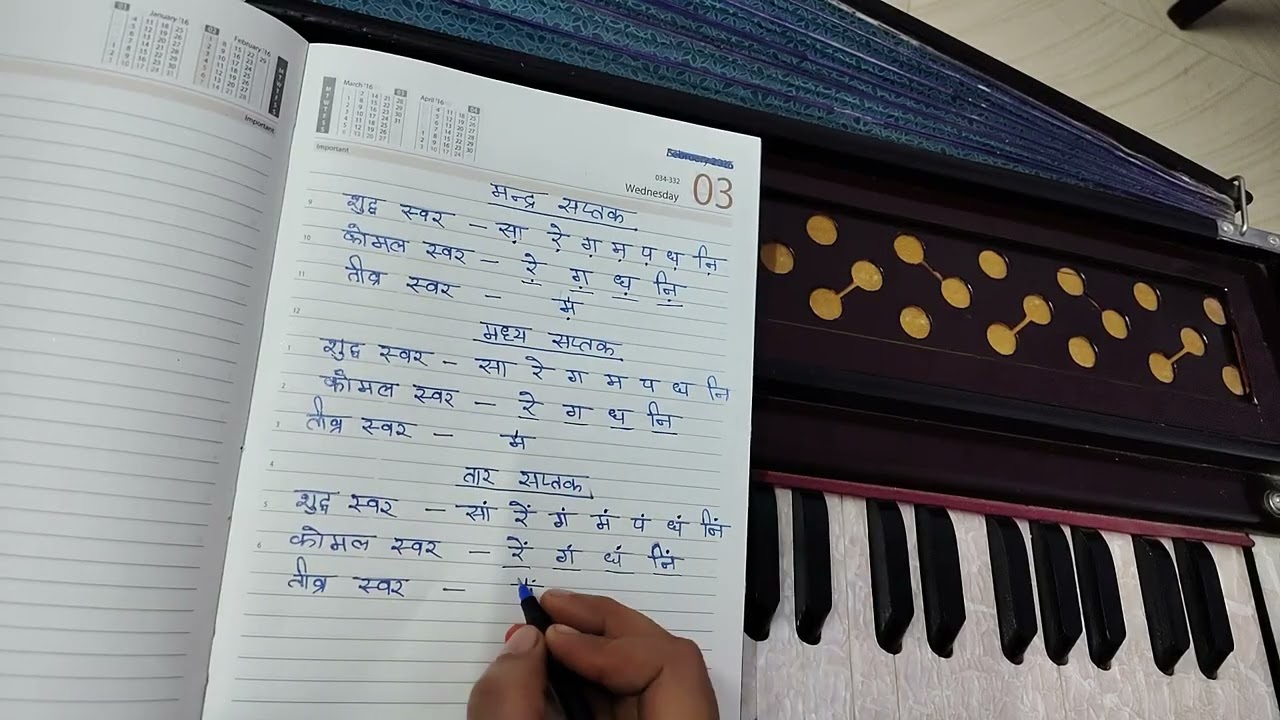 January '16
February '16
Important
March '16
April '16
Important
February 2016
034-332
Wednesday 03
मन्द्र सप्तक
शुद्ध स्वर - सा़ रे़ ग़ म़ प़ ध़ नि़
कोमल स्वर - रे़ ग़ ध़ नि़
तीव्र स्वर - म़॑
मध्य सप्तक
शुद्ध स्वर - सा रे ग म प ध नि
कोमल स्वर - रे ग ध नि
तीव्र स्वर - म॑
तार सप्तक
शुद्ध स्वर - सां रें गं मं पं धं निं
कोमल स्वर - रें गं धं निं
तीव्र स्वर -